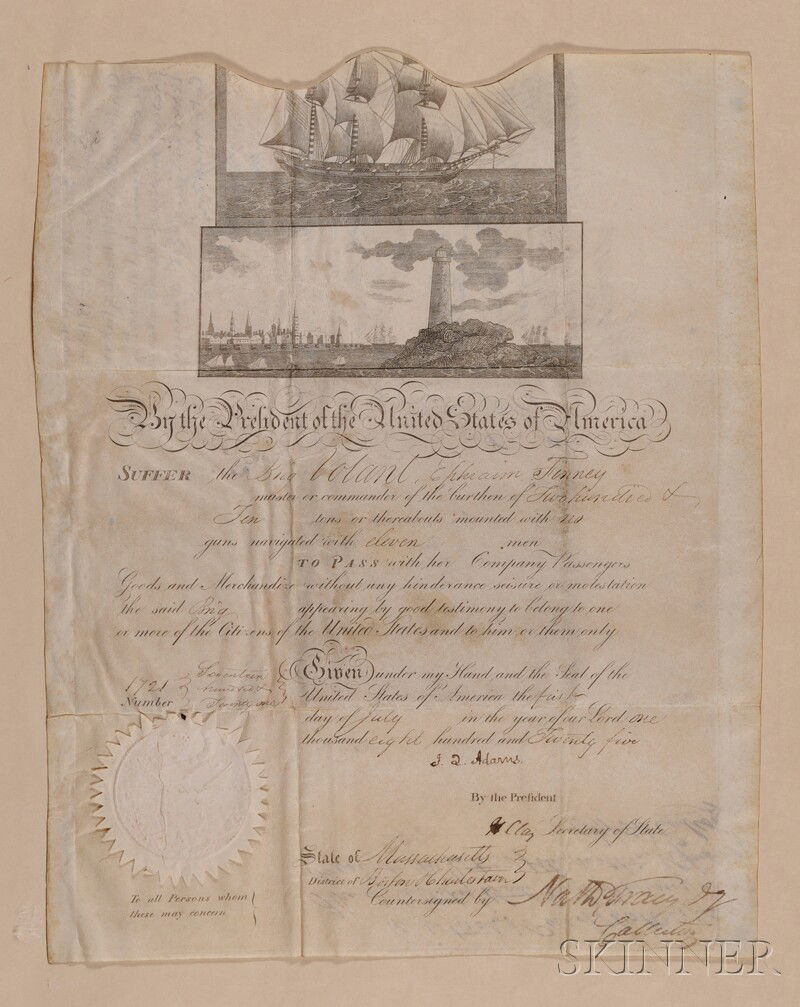 By the President of the United States of America
SUFFER the Brig Volant, Ephraim Tinney
master or commander of the burthen of Two hundred &
Ten tons or thereabouts mounted with no
guns navigated with eleven men
TO PASS with her Company Passengers
Goods and Merchandize without any hinderance seisure or molestation
the said Brig appearing by good testimony to belong to one
or more of the Citizens of the United States and to him or them only
Given under my Hand and the Seal of the
United States of America the first
day of July in the year of our Lord one
thousand eight hundred and Twenty five
1721 Seventeen
hundred &
Number Twenty one
J. Q. Adams.
By the President
H Clay Secretary of State
State of Massachusetts
District of Boston & Charlestown
Countersigned by
To all Persons whom
these may concern
SKINNER